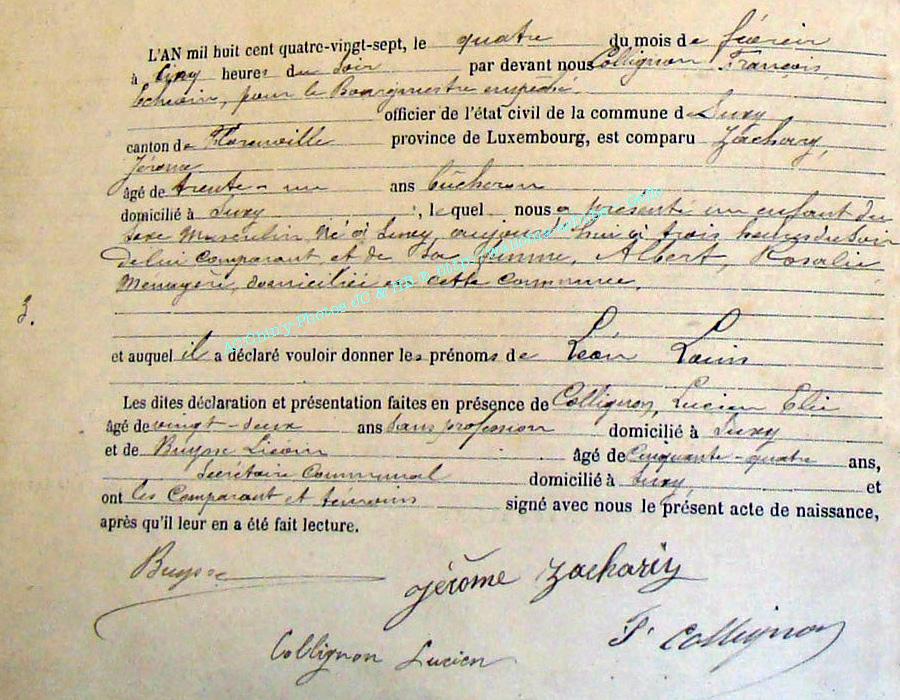 L'AN mil huit cent quatre-vingt-sept, le quatre du mois de février
à cinq heures du soir par devant nous Collignon François,
Echevin, pour le Bourgmestre empêché.
officier de l'état civil de la commune de Suxy
canton de Florenville province de Luxembourg, est comparu Zachary,
Jérôme
âgé de trente-un ans bûcheron
domicilié à Suxy, lequel nous a présenté un enfant du
sexe Masculin, Né à Suxy, aujourd'hui à trois heures du soir
de lui comparant et de sa femme, Albert, Rosalie
Menagère, domiciliée en cette commune.
3.
et auquel il a déclaré vouloir donner les prénoms de Léon Louis
Les dites déclaration et présentation faites en présence de Collignon, Lucien Elie
âgé de vingt-deux ans sans profession domicilié à Suxy
et de Buysse âgé de Cinquante-quatre ans,
Secrétaire Communal domicilié à Suxy et
ont les Comparant et temoins signé avec nous le présent acte de naissance,
après qu'il leur en a été fait lecture.
Buysse
Jérome Zachariy
Collignon Lucien
F. Collignon